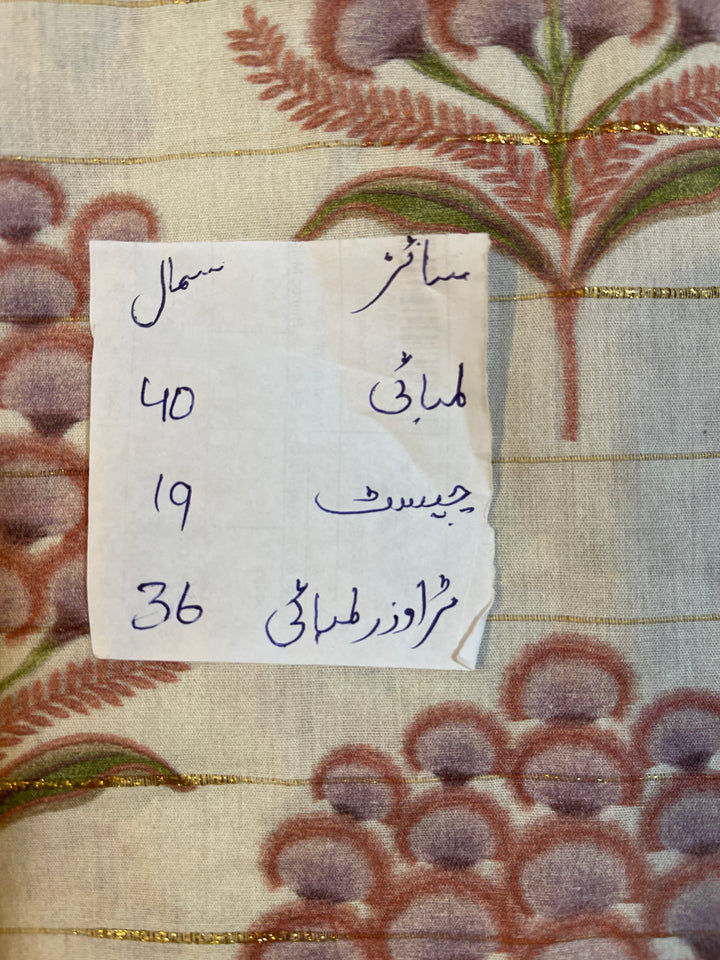 سائز سمال
لمبائی 40
چیسٹ 19
ٹراوذر لمبائی 36